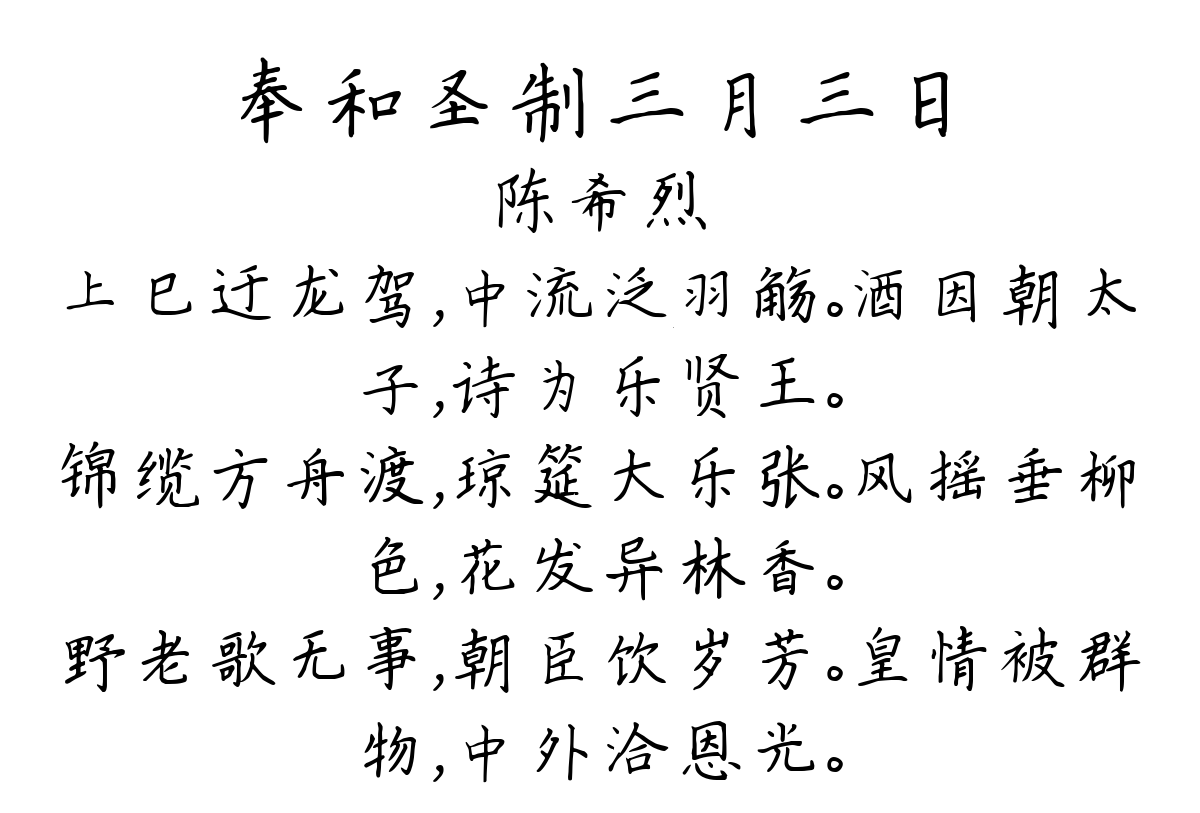 奉和圣制三月三日
陈希烈
上巳迂龙驾,中流泛羽觞。酒因朝太
子,诗为乐贤王。
锦缆方舟渡,琼筵大乐张。风摇垂柳
色,花发异林香。
野老歌无事,朝臣饮岁芳。皇情被群
物,中外洽恩光。